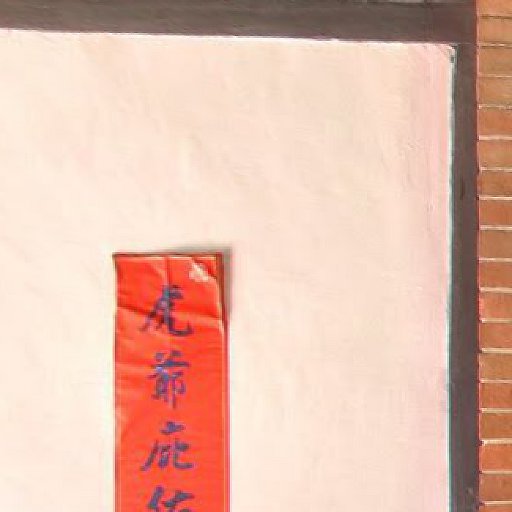 虎爺庇佑